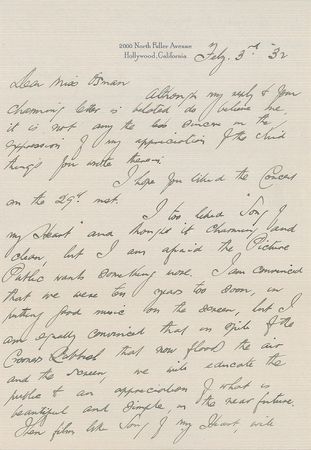 2000 North Fuller Avenue
Hollywood, California
Feby. 3rd '32
Dear Miss
Although my reply to your
charming letter is belated, do believe me,
it is not any the less sincere in the
expression of my appreciation of the kind
things you write therein.
I hope you liked the Concert
on the 29th inst.
I too liked "Song O
my Heart" and thought it charming and
clean, but I am afraid the Picture
Public wants something more. I am convinced
that we were ten years too soon, in
putting good music on the screen, but I
am equally convinced that in spite of the
that now flood the air
and the screen, we will educate the
public to an appreciation of what is
beautiful and simple, in the near future.
Then films like Song O my Heart will